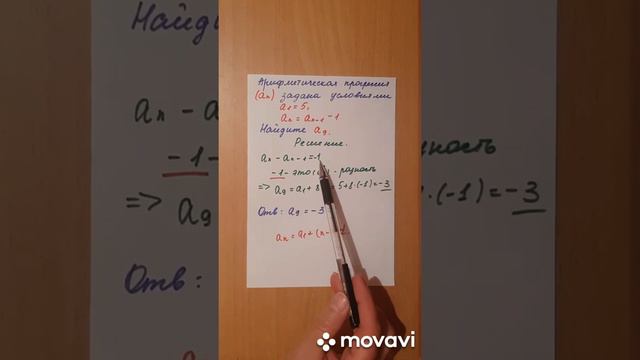 Арифметическая прогрессия
(an) задана условиями
a1 = 5,
an = an-1 - 1
Найдите a9.
Решение.
an - an-1 = -1
-1 - это - разность
=> a9 = a1 + 8 = 5+8·(-1) = -3
Отв: a9 = -3
an = a1 + (n-
movavi